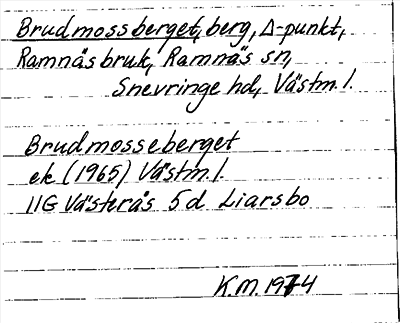 Brudmossberget, berg, Δ-punkt,
Ramnäs bruk, Ramnäs sn,
Snevringe hd, Västm.l.
Brudmosseberget
ek (1965) Västm.l.
11G Västerås 5d Liarsbo
K.M. 1974